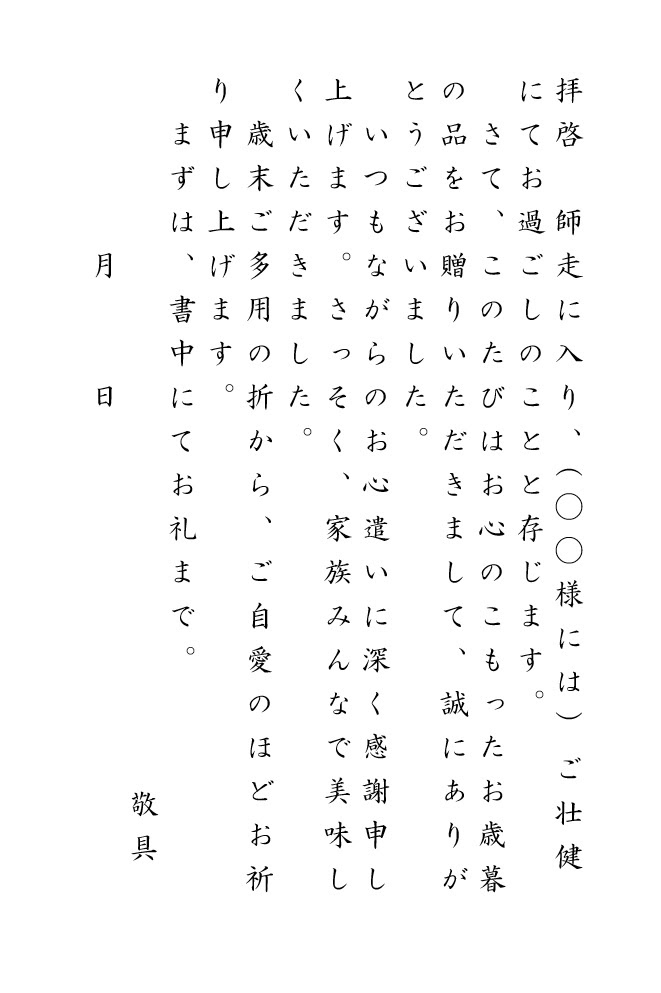 拝啓　師走に入り、（〇〇様には）ご壮健
にてお過ごしのことと存じます。
　さて、このたびはお心のこもったお歳暮
の品をお贈りいただきまして、誠にありが
とうございました。
　いつもながらのお心遣いに深く感謝申し
上げます。さっそく、家族みんなで美味し
くいただきました。
　歳末ご多用の折から、ご自愛のほどお祈
り申し上げます。
　まずは、書中にてお礼まで。
敬具
月　　日